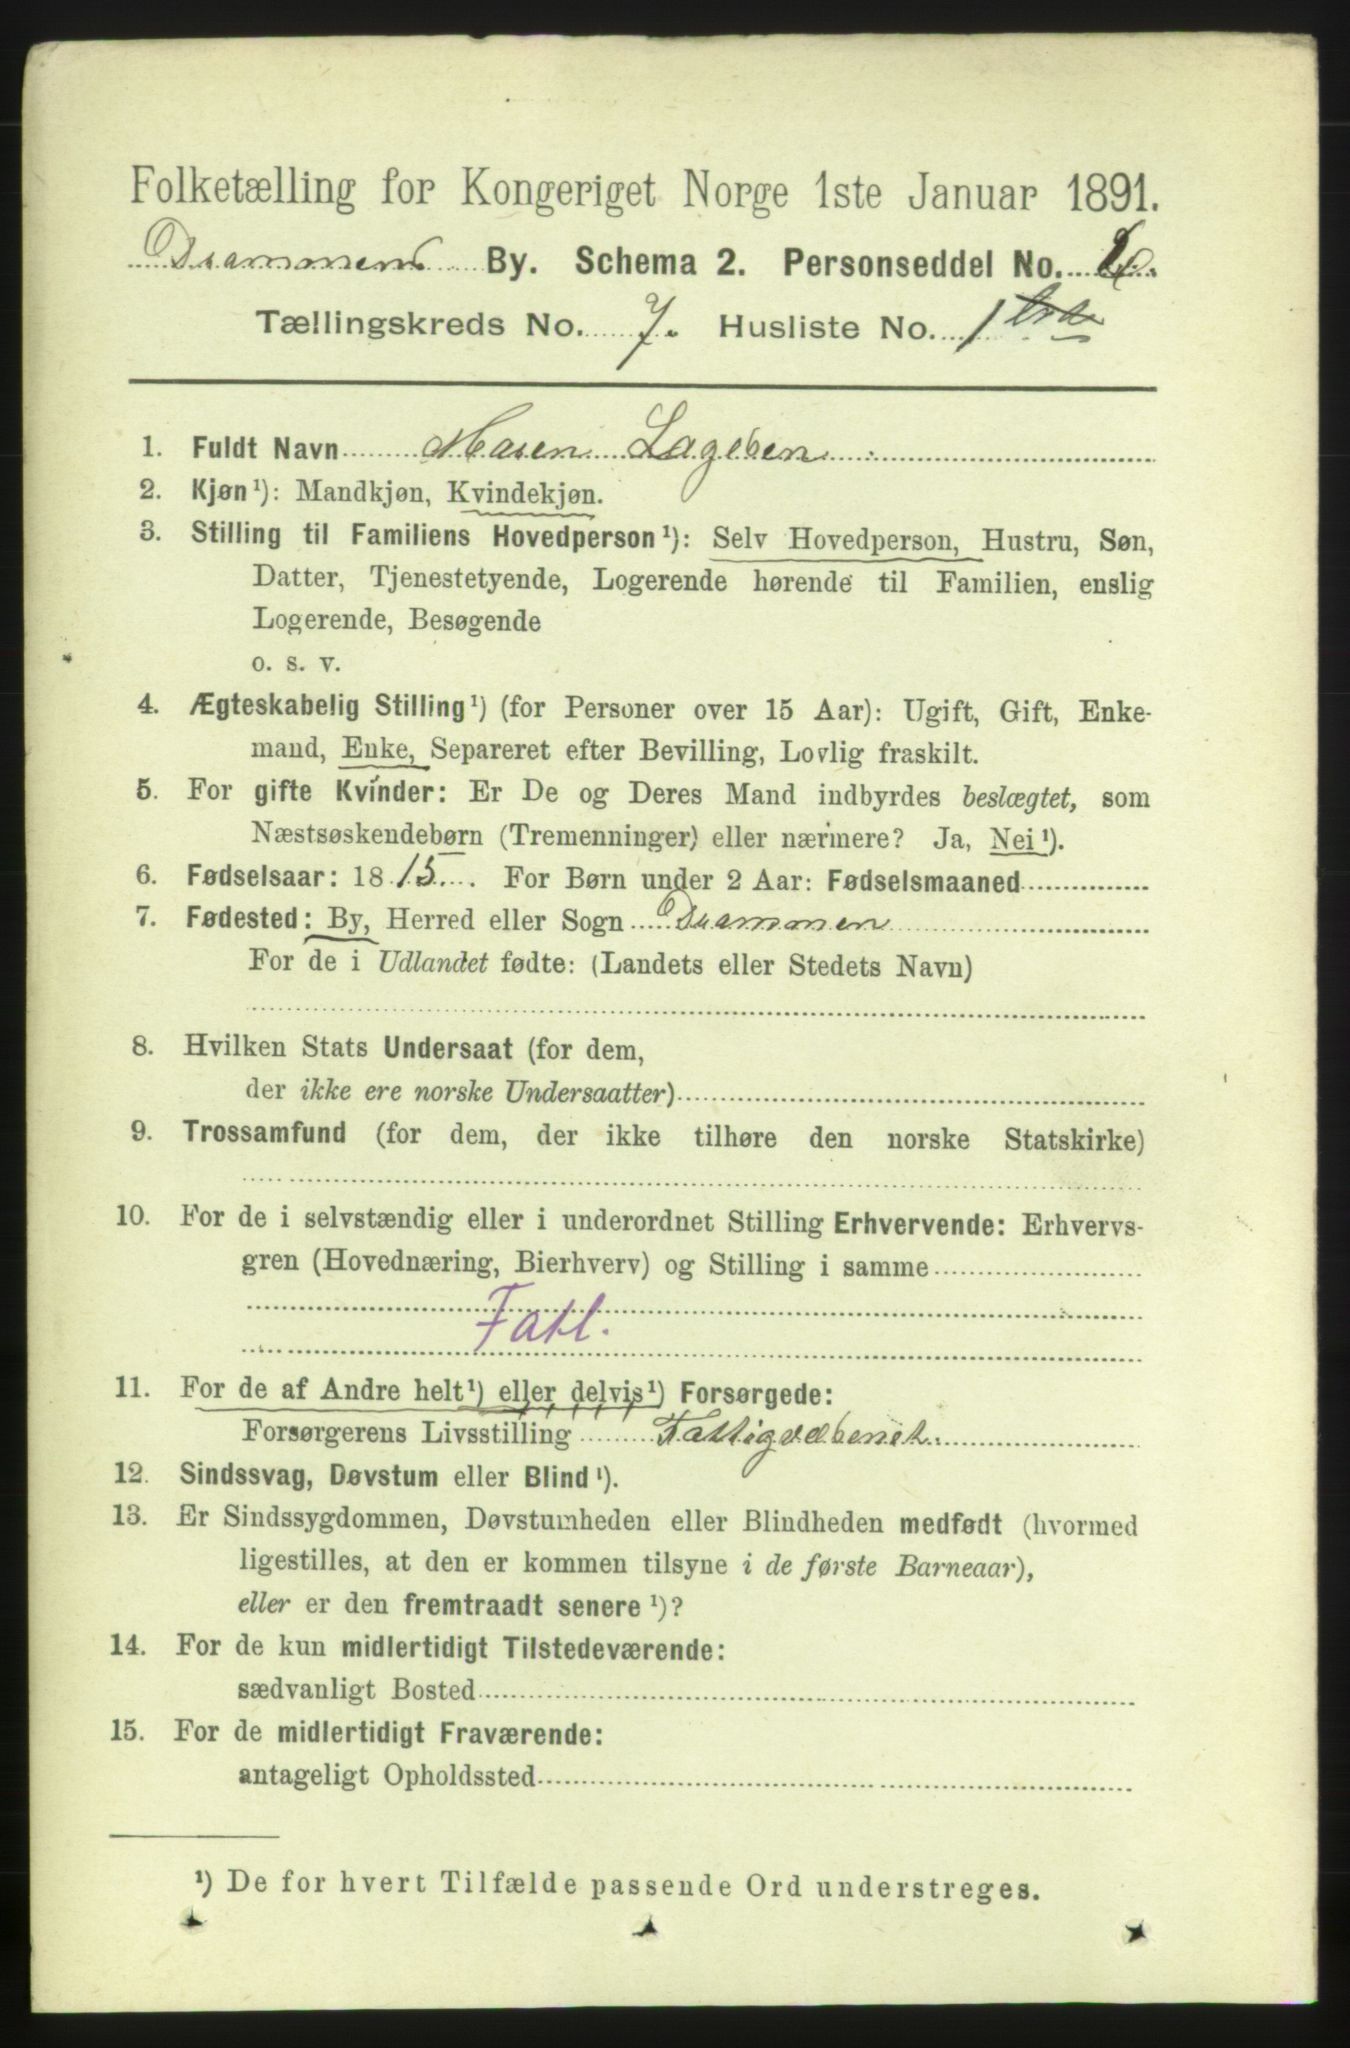 Folketælling for Kongeriget Norge 1ste Januar 1891.
Drammens By. Schema 2. Personseddel No.
Tællingskreds No. 7. Husliste No. 1
1. Fuldt Navn Maren Lagesen
2. Kjøn¹): Mandkjøn, Kvindekjøn.
3. Stilling til Familiens Hovedperson¹): Selv Hovedperson, Hustru, Søn,
Datter, Tjenestetyende, Logerende hørende til Familien, enslig
Logerende, Besøgende
o. s. v.
4. Ægteskabelig Stilling¹) (for Personer over 15 Aar): Ugift, Gift, Enke-
mand, Enke, Separeret efter Bevilling, Lovlig fraskilt.
5. For gifte Kvinder: Er De og Deres Mand indbyrdes beslægtet, som
Næstsøskendebørn (Tremenninger) eller nærmere? Ja, Nei¹).
6. Fødselsaar: 1815. For Børn under 2 Aar: Fødselsmaaned
7. Fødested: By, Herred eller Sogn Drammen
For de i Udlandet fødte: (Landets eller Stedets Navn)
8. Hvilken Stats Undersaat (for dem,
der ikke ere norske Undersaatter)
9. Trossamfund (for dem, der ikke tilhøre den norske Statskirke)
10. For de i selvstændig eller i underordnet Stilling Erhvervende: Erhvervs-
gren (Hovednæring, Bierhverv) og Stilling i samme
Fatl.
11. For de af Andre helt¹) eller delvis¹) Forsørgede:
Forsørgerens Livsstilling Fattigvæsenet.
12. Sindssvag, Døvstum eller Blind¹).
13. Er Sindssygdommen, Døvstumheden eller Blindheden medfødt (hvormed
ligestilles, at den er kommen tilsyne i de første Barneaar),
eller er den fremtraadt senere¹)?
14. For de kun midlertidigt Tilstedeværende:
sædvanligt Bosted
15. For de midlertidigt Fraværende:
antageligt Opholdssted
¹) De for hvert Tilfælde passende Ord understreges.